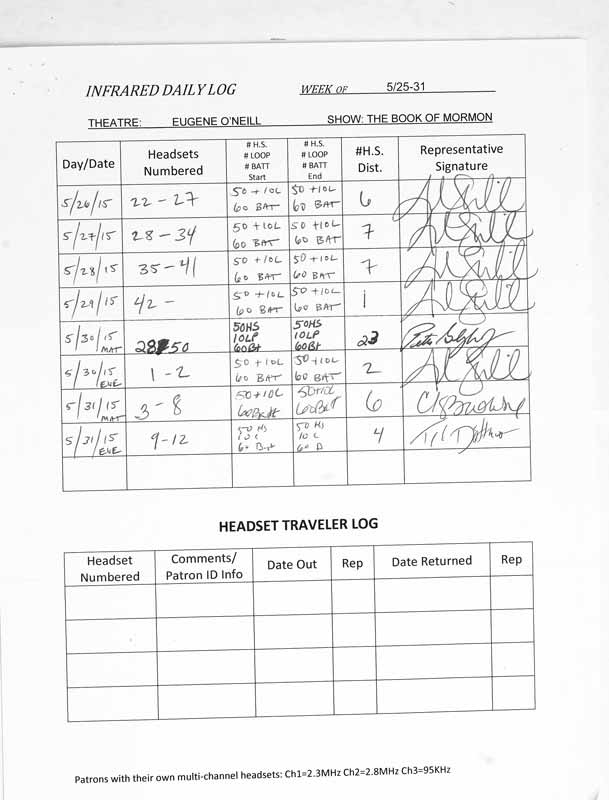 INFRARED DAILY LOG WEEK OF 5/25-31
THEATRE: EUGENE O'NEILL SHOW: THE BOOK OF MORMON
Day/Date Headsets Numbered # H.S. # LOOP # BATT Start # H.S. # LOOP # BATT End #H.S. Dist. Representative Signature
5/26/15 22-27 50+10L 60 BAT 50+10L 60 BAT 6
5/27/15 28-34 50+10L 60 BAT 50+10L 60 BAT 7
5/28/15 35-41 50+10L 60 BAT 50+10L 60 BAT 7
5/29/15 42- 50+10L 60 BAT 50+10L 60 BAT 1
5/30/15 MAT 50 50HS 10LP 60Bt 50HS 10LP 60Bt 23
5/30/15 EVE 1-2 50+10L 60 BAT 50+10L 60 BAT 2
5/31/15 MAT 3-8 50+10L 60Batt 50+10L 60Batt 6
5/31/15 EVE 9-12 50 HS 10 L 50 HS 10 L 4
HEADSET TRAVELER LOG
Headset Numbered Comments/ Patron ID Info Date Out Rep Date Returned Rep
Patrons with their own multi-channel headsets: Ch1=2.3MHz Ch2=2.8MHz Ch3=95KHz